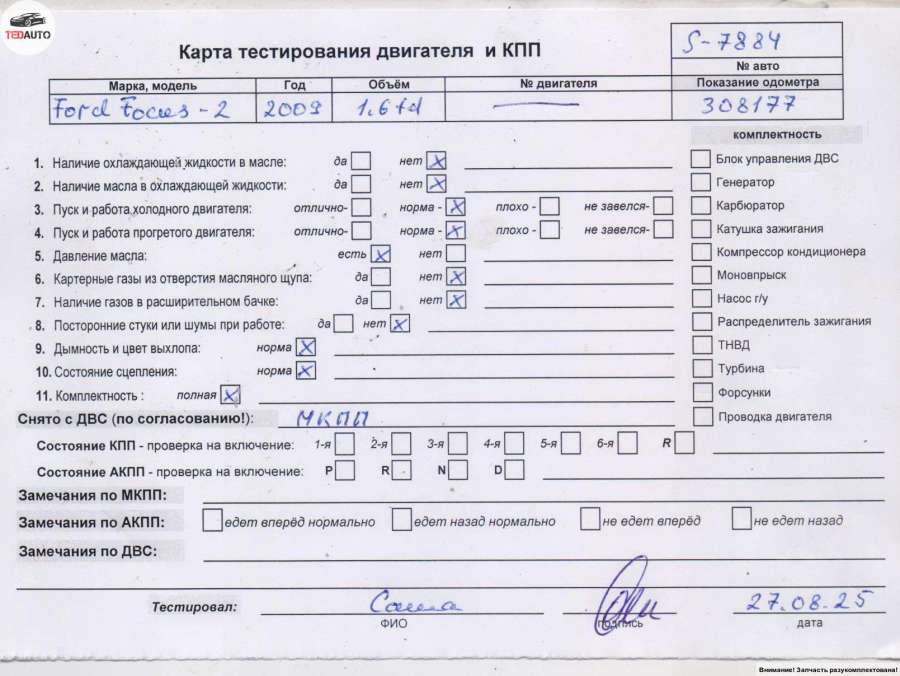 TEDAUTO
Карта тестирования двигателя и КПП
S-7884
№ авто
Марка, модель Год Объём № двигателя Показание одометра
Ford Focus-2 2009 1.6td — 308177
комплектность
1. Наличие охлаждающей жидкости в масле: да нет X
2. Наличие масла в охлаждающей жидкости: да нет X
3. Пуск и работа холодного двигателя: отлично- норма - X плохо - не завелся-
4. Пуск и работа прогретого двигателя: отлично- норма - X плохо - не завелся-
5. Давление масла: есть X нет
6. Картерные газы из отверстия масляного щупа: да нет X
7. Наличие газов в расширительном бачке: да нет X
8. Посторонние стуки или шумы при работе: да нет X
9. Дымность и цвет выхлопа: норма X
10. Состояние сцепления: норма X
11. Комплектность : полная X
Блок управления ДВС
Генератор
Карбюратор
Катушка зажигания
Компрессор кондиционера
Моновпрыск
Насос г/у
Распределитель зажигания
ТНВД
Турбина
Форсунки
Проводка двигателя
Снято с ДВС (по согласованию!): МКПП
Состояние КПП - проверка на включение: 1-я 2-я 3-я 4-я 5-я 6-я R
Состояние АКПП - проверка на включение: P R N D
Замечания по МКПП:
Замечания по АКПП: едет вперёд нормально едет назад нормально не едет вперёд не едет назад
Замечания по ДВС:
Тестировал: Саша 27.08.25
ФИО подпись дата
Внимание! Запчасть разукомплектована!